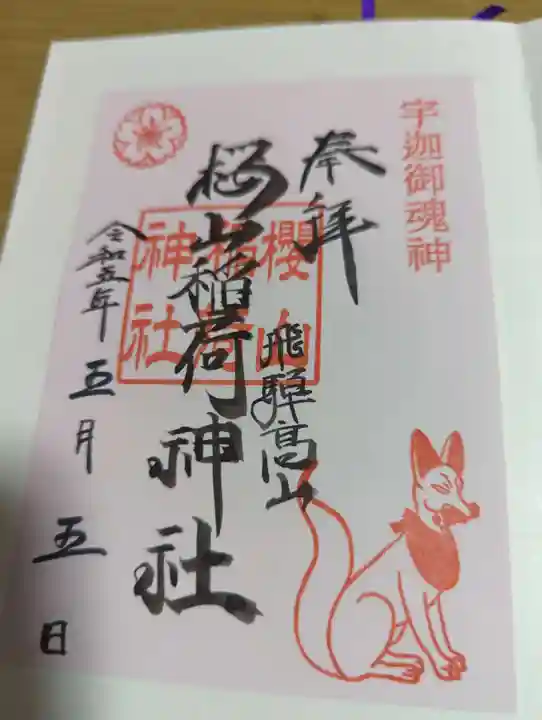 宇迦御魂神
奉拝
飛騨高山
桜山稲荷神社
櫻山
稲荷
神社
令和五年五月五日